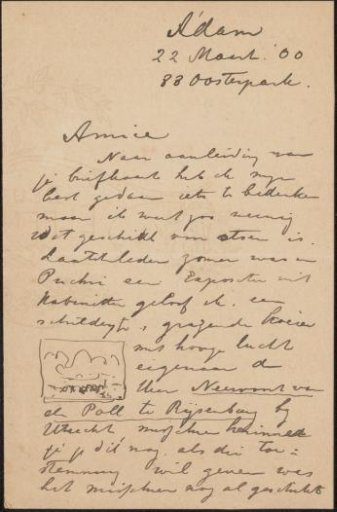 A'dam
22 Maart. 00
83 Oosterpark.
Amice
Naar aanleiding van
je briefkaart heb ik mijn
best gedaan iets te bedenken
maar ik weet zoo weinig
wat geschikt voor etsen is.
Laatstleden zomer was in
Pulchri een Expositie uit
Kabinetten geloof ik, een
schilderijtje, grazende koeien
met hooge lucht
eigenaar de
Heer Neervoort van
de Poll te Rijsenburg bij
Utrecht misschien herinner
je je dit nog, als die toe=
stemming wil geven was
het misschien nog al geschikt